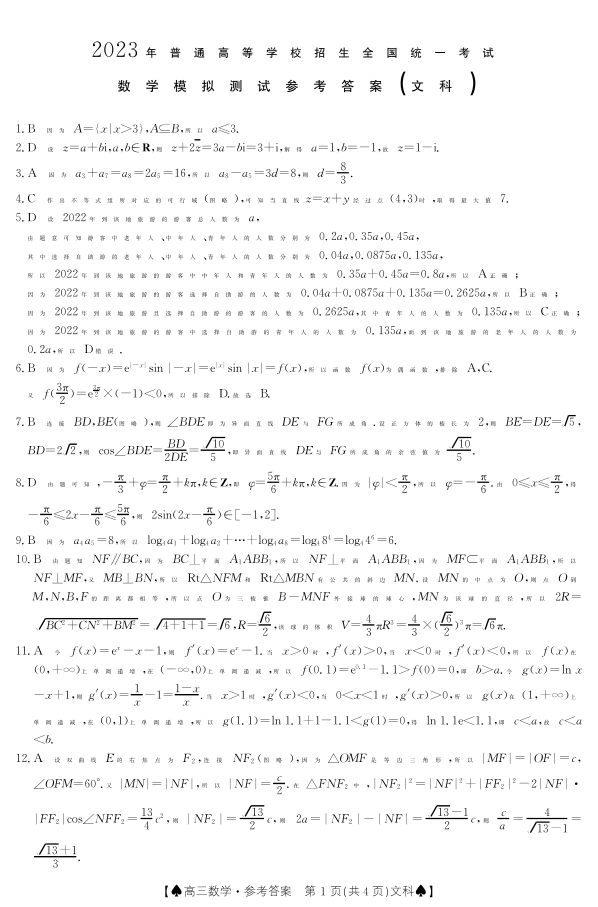 2023年普通高等学校招生全国统一考试
数学模拟测试参考答案(文科)
1. B 因为 A={x|x>3},A⊆B,所以 a≤3.
2. D 设 z=a+bi,a,b∈R,则 z+2z̅=3a−bi=3+i,解得 a=1,b=−1,故 z=1−i.
3. A 因为 a₃+a₇=a₈=2a₅=16,所以 a₈−a₅=3d=8,则 d=8/3.
4. C 作出不等式组所对应的可行域(图略),可知当直线 z=x+y 经过点(4,3)时,取得最大值 7.
5. D 设 2022 年到该地旅游的游客总人数为 a,
由题意可知游客中老年人、中年人、青年人的人数分别为 0.2a,0.35a,0.45a,
其中选择自助游的老年人、中年人、青年人的人数分别为 0.04a,0.0875a,0.135a,
所以 2022 年到该地旅游的游客中中年人和青年人的人数为 0.35a+0.45a=0.8a,所以 A 正确;
因为 2022 年到该地旅游的游客选择自助游的人数为 0.04a+0.0875a+0.135a=0.2625a,所以 B 正确;
因为 2022 年到该地旅游且选择自助游的游客的人数为 0.2625a,其中青年人的人数为 0.135a,所以 C 正确;
因为 2022 年到该地旅游的游客中选择自助游的青年人的人数为 0.135a,而到该地旅游的老年人的人数为
0.2a,所以 D 错误.
6. B 因为 f(−x)=e^|−x| sin|−x|=e^|x| sin|x|=f(x),所以函数 f(x)为偶函数,排除 A,C.
又 f(3π/2)=e^(3π/2)×(−1)<0,所以排除 D.故选 B.
7. B 连接 BD,BE(图略),则∠BDE 即为异面直线 DE 与 FG 所成角.设正方体的棱长为 2,则 BE=DE=√5,
BD=2√2,则 cos∠BDE=BD/2DE=√10/5,即异面直线 DE 与 FG 所成角的余弦值为√10/5.
8. D 由题可知,−π/3+φ=π/2+kπ,k∈Z,即 φ=5π/6+kπ,k∈Z.因为|φ|<π/2,所以 φ=−π/6.由 0≤x≤π/2,得
−π/6≤2x−π/6≤5π/6,则 2sin(2x−π/6)∈[−1,2].
9. B 因为 a₄a₅=8,所以 log₄a₁+log₄a₂+⋯+log₄a₈=log₄8⁴=log₄4⁶=6.
10. B 由题知 NF∥BC,因为 BC⊥平面 A₁ABB₁,所以 NF⊥平面 A₁ABB₁,因为 MF⊂平面 A₁ABB₁,所以
NF⊥MF,又 MB⊥BN,所以 Rt△NFM 和 Rt△MBN 有公共的斜边 MN.设 MN 的中点为 O,则点 O 到
M,N,B,F 的距离都相等,所以点 O 为三棱锥 B−MNF 外接球的球心,MN 为该球的直径,所以 2R=
√(BC²+CN²+BM²)=√(4+1+1)=√6,R=√6/2,该球的体积 V=4/3πR³=4/3×(√6/2)³π=√6π.
11. A 令 f(x)=eˣ−x−1,则 f′(x)=eˣ−1.当 x>0 时,f′(x)>0,当 x<0 时,f′(x)<0,所以 f(x)在
(0,+∞)上单调递增,在(−∞,0)上单调递减,所以 f(0.1)=e^0.1−1.1>f(0)=0,即 b>a.令 g(x)=ln x
−x+1,则 g′(x)=1/x−1=(1−x)/x.当 x>1 时,g′(x)<0,当 0<x<1 时,g′(x)>0,所以 g(x)在(1,+∞)上
单调递减,在(0,1)上单调递增,所以 g(1.1)=ln 1.1+1−1.1<g(1)=0,得 ln 1.1e<1.1,即 c<a,故 c<a
<b.
12. A 设双曲线 E 的右焦点为 F₂,连接 NF₂(图略),因为△OMF 是等边三角形,所以|MF|=|OF|=c,
∠OFM=60°.又|MN|=|NF|,所以|NF|=c/2.在△FNF₂中,|NF₂|²=|NF|²+|FF₂|²−2|NF|·
|FF₂|cos∠NFF₂=13/4c²,则|NF₂|=√13/2c,则 2a=|NF₂|−|NF|=(√13−1)/2c,则 c/a=4/(√13−1)=
(√13+1)/3.
【♠高三数学·参考答案 第1页(共4页)文科♠】